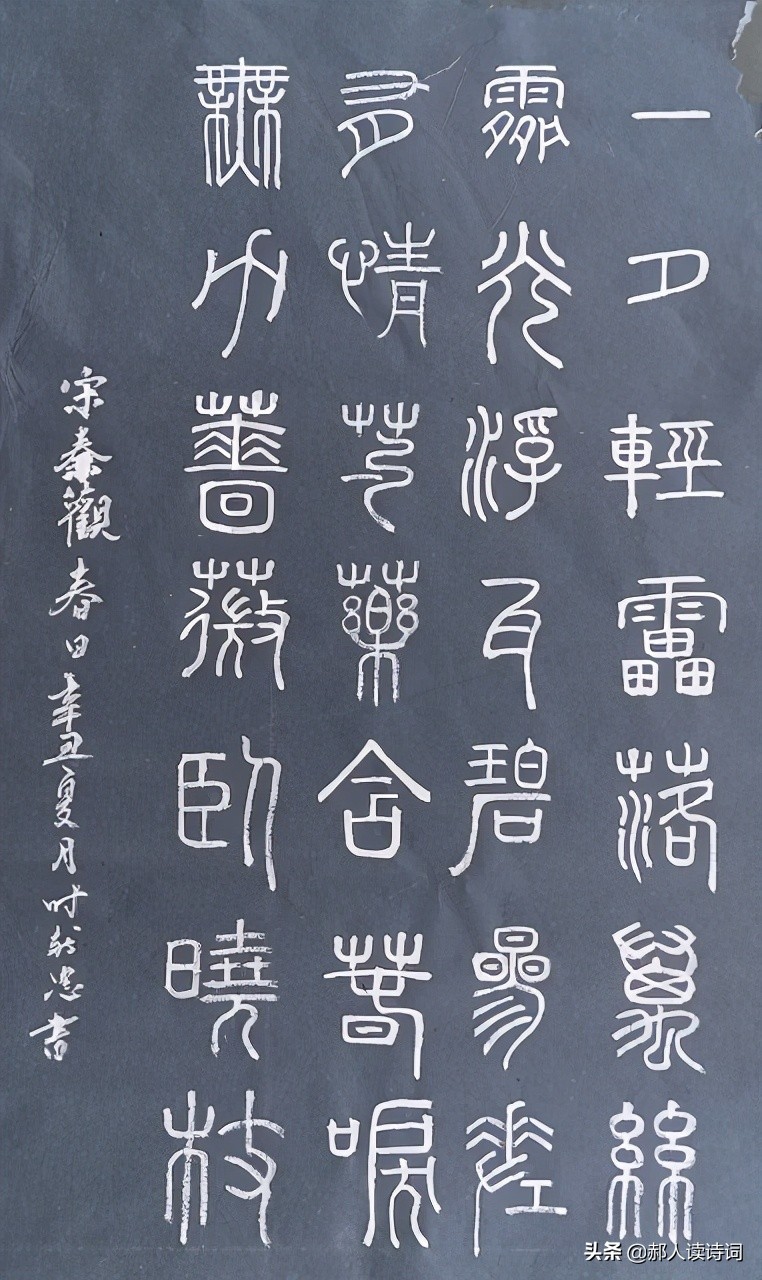 一夕輕雷落萬絲
霽光浮瓦碧參差
有情芍藥含春唳
無力薔薇臥曉枝
宋秦觀春日辛丑夏月时忠書
头条 @郝人读诗词